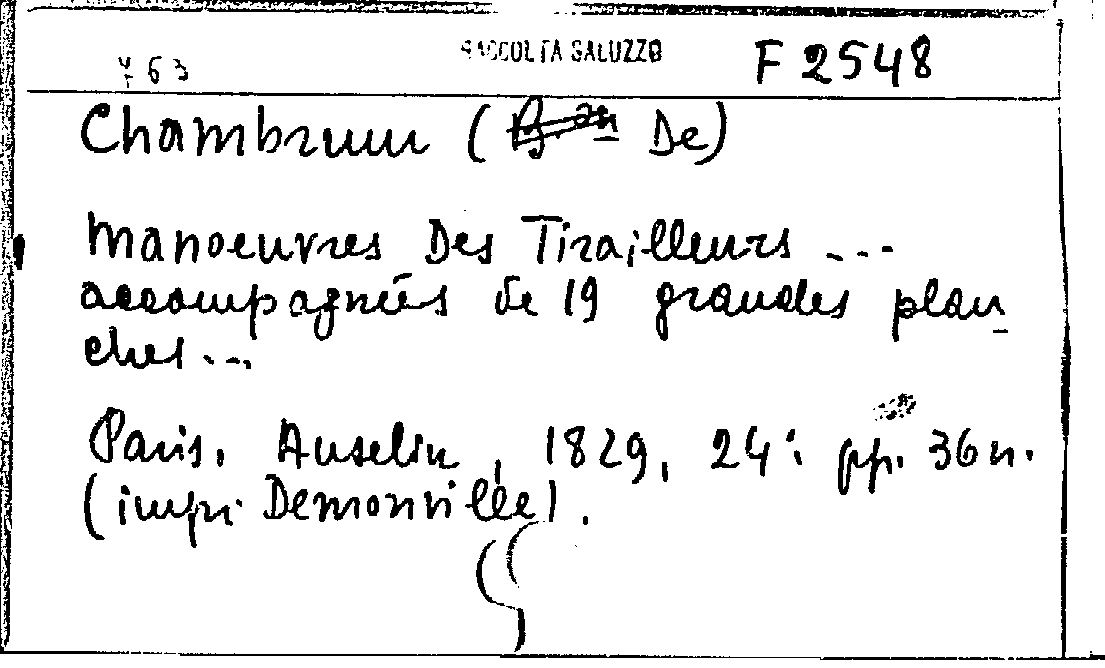 763 RACCOLTA SALUZZO F 2548
Chambrun (B.on De)
Manoeuvres Des Tirailleurs ...
accompagnées de 19 grandes plan
ches ...
Paris, Anselin, 1829, 24° pp. 36 n.
(impr. Demonville).